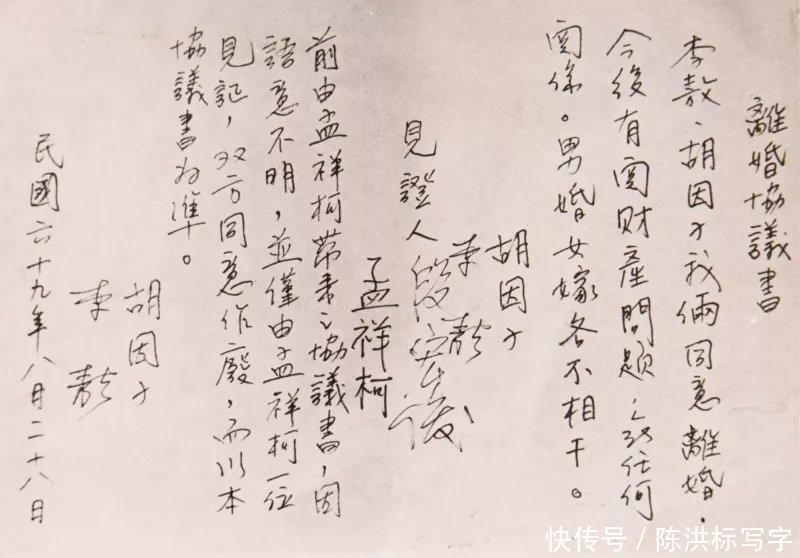 離婚協議書
李敖、胡因子我倆同意離婚.
今後有関財產問題,及任何
関係。男婚女嫁各不相干。
胡因子
李敖
見證人段宏俊
孟祥柯
前由孟祥柯帶来之協議書,因
語意不明,並僅由孟祥柯一位
見証,双方同意作廢,而以本
協議書為準。
胡因子
李敖
民國六十九年八月二十八日
快传号/陈洪标写字